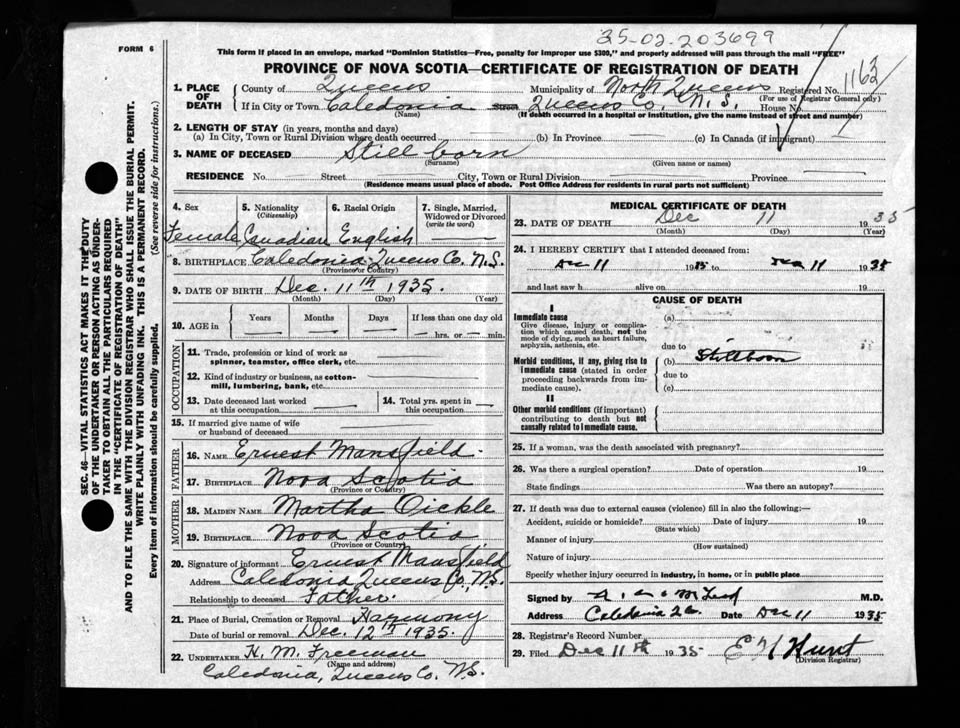 35-02-203699
FORM 6
This form if placed in an envelope, marked "Dominion Statistics—Free, penalty for improper use $300," and properly addressed will pass through the mail "FREE"
PROVINCE OF NOVA SCOTIA—CERTIFICATE OF REGISTRATION OF DEATH
1. PLACE OF DEATH County of Queens Municipality of North Queens Registered No. 1162
(For use of Registrar General only)
If in City or Town Caledonia Street Queens Co. N.S. House No.
(Name) (If death occurred in a hospital or institution, give the name instead of street and number)
2. LENGTH OF STAY (in years, months and days)
(a) In City, Town or Rural Division where death occurred (b) In Province (c) In Canada (if immigrant)
3. NAME OF DECEASED Still born
(Surname) (Given name or names)
RESIDENCE No. Street City, Town or Rural Division Province
(Residence means usual place of abode. Post Office Address for residents in rural parts not sufficient)
SEC. 46—VITAL STATISTICS ACT MAKES IT THE DUTY
OF THE UNDERTAKER OR PERSON ACTING AS UNDER-
TAKER TO OBTAIN ALL THE PARTICULARS REQUIRED
IN THE "CERTIFICATE OF REGISTRATION OF DEATH"
AND TO FILE THE SAME WITH THE DIVISION REGISTRAR WHO SHALL ISSUE THE BURIAL PERMIT.
WRITE PLAINLY WITH UNFADING INK. THIS IS A PERMANENT RECORD.
Every item of information should be carefully supplied. (See reverse side for instructions.)
4. Sex 5. Nationality (Citizenship) 6. Racial Origin 7. Single, Married, Widowed or Divorced (write the word)
Female Canadian English
8. BIRTHPLACE Caledonia Queens Co. N.S.
(Province or Country)
9. DATE OF BIRTH Dec. 11th 1935.
(Month) (Day) (Year)
10. AGE in Years Months Days If less than one day old
hrs. or min.
OCCUPATION
11. Trade, profession or kind of work as
spinner, teamster, office clerk, etc.
12. Kind of industry or business, as cotton-
mill, lumbering, bank, etc.
13. Date deceased last worked at this occupation 14. Total yrs. spent in this occupation
15. If married give name of wife
or husband of deceased
FATHER
16. NAME Ernest Mansfield
17. BIRTHPLACE Nova Scotia
(Province or Country)
MOTHER
18. MAIDEN NAME Martha Oickle
19. BIRTHPLACE Nova Scotia
(Province or Country)
20. Signature of informant Ernest Mansfield
Address Caledonia Queens Co. N.S.
Relationship to deceased Father
21. Place of Burial, Cremation or Removal Harmony
Date of burial or removal Dec. 12th 1935.
22. UNDERTAKER H. M. Freeman
(Name and address)
Caledonia, Queens Co. N.S.
MEDICAL CERTIFICATE OF DEATH
23. DATE OF DEATH Dec 11 1935
(Month) (Day) (Year)
24. I HEREBY CERTIFY that I attended deceased from:
Dec 11 1935 to Dec 11 1935
and last saw h alive on 19
CAUSE OF DEATH
I
Immediate cause (a)
Give disease, injury or complica-
tion which caused death, not the
mode of dying, such as heart failure,
asphyxia, asthenia, etc.
due to
Morbid conditions, if any, giving rise to (b) Stillborn
immediate cause (stated in order
proceeding backwards from im-
mediate cause).
due to
(c)
II
Other morbid conditions (if important)
contributing to death but not
causally related to immediate cause.
25. If a woman, was the death associated with pregnancy?
26. Was there a surgical operation? Date of operation 19
State findings Was there an autopsy?
27. If death was due to external causes (violence) fill in also the following:—
Accident, suicide or homicide? Date of injury 19
(State which)
Manner of injury
(How sustained)
Nature of injury
Specify whether injury occurred in industry, in home, or in public place
Signed by M.D.
Address Caledonia Date Dec 11 1935
28. Registrar's Record Number
29. Filed Dec 11th 1935 E H Hunt
(Division Registrar)